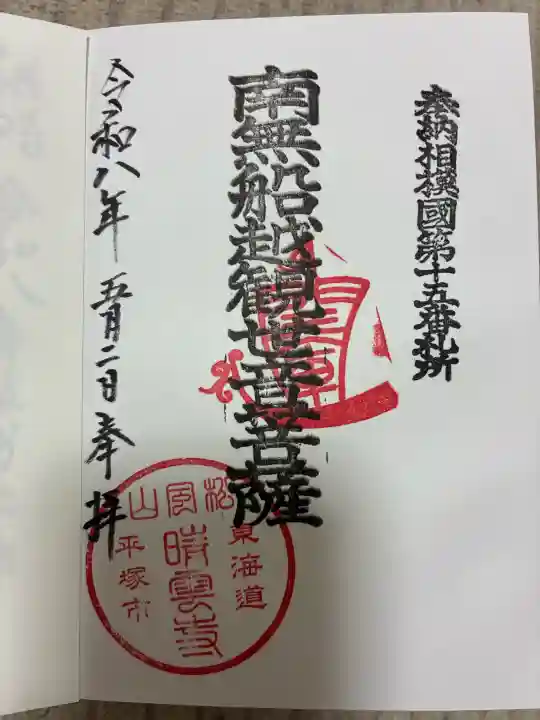 奉納相模國第十五番札所
南無船越観世音菩薩
令和八年 五月二日 奉拝
東海道
松風山
晴雲寺
平塚市